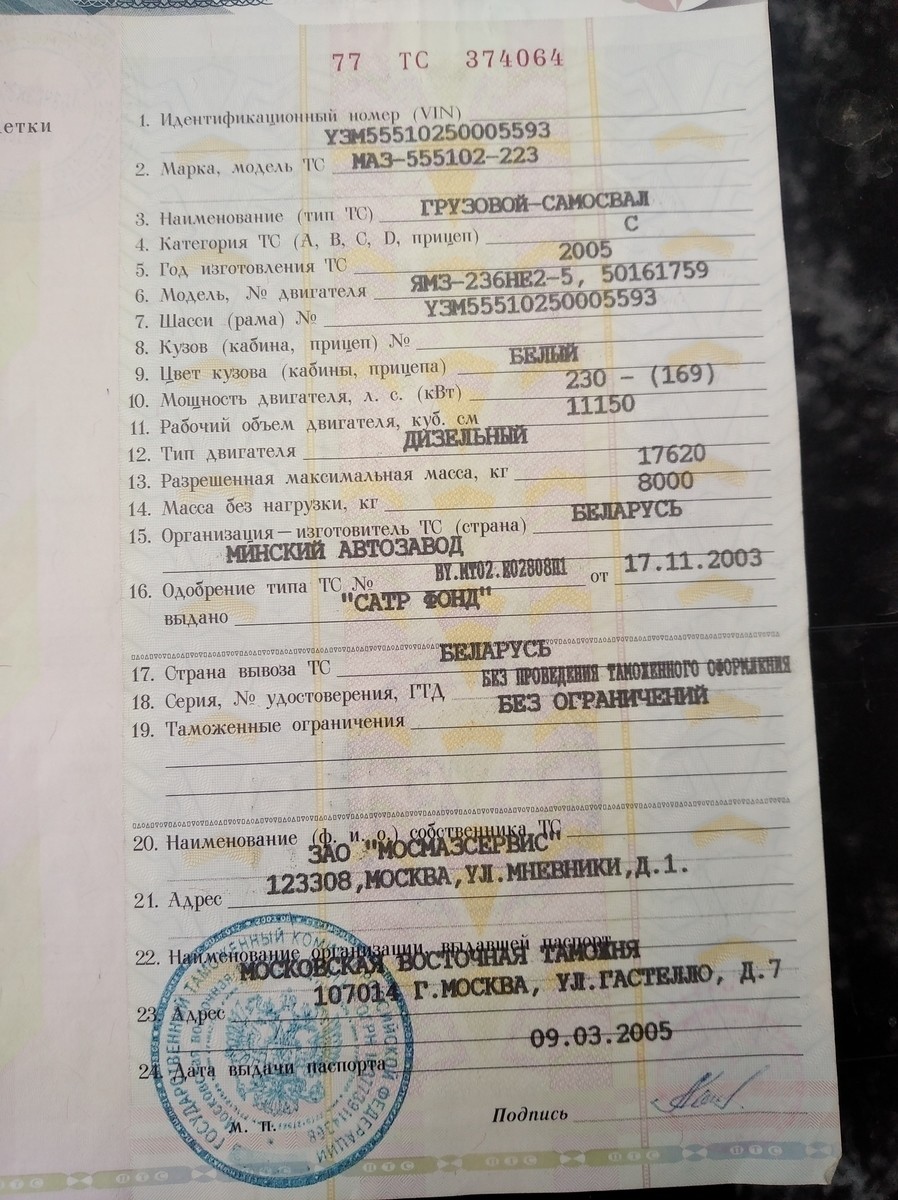 етки
77 ТС 374064
1. Идентификационный номер (VIN)
Y3M55510250005593
2. Марка, модель ТС МАЗ-555102-223
3. Наименование (тип ТС) ГРУЗОВОЙ-САМОСВАЛ
4. Категория ТС (А, В, С, D, прицеп) С
5. Год изготовления ТС 2005
6. Модель, № двигателя ЯМЗ-236НЕ2-5, 50161759
7. Шасси (рама) № Y3M55510250005593
8. Кузов (кабина, прицеп) №
9. Цвет кузова (кабины, прицепа) БЕЛЫЙ
10. Мощность двигателя, л. с. (кВт) 230 - (169)
11. Рабочий объем двигателя, куб. см 11150
12. Тип двигателя ДИЗЕЛЬНЫЙ
13. Разрешенная максимальная масса, кг 17620
14. Масса без нагрузки, кг 8000
15. Организация—изготовитель ТС (страна) БЕЛАРУСЬ
МИНСКИЙ АВТОЗАВОД
16. Одобрение типа ТС № BY.MT02.E02808П1 от 17.11.2003
выдано "САТР ФОНД"
17. Страна вывоза ТС БЕЛАРУСЬ
18. Серия, № удостоверения, ГТД БЕЗ ПРОВЕДЕНИЯ ТАМОЖЕННОГО ОФОРМЛЕНИЯ
19. Таможенные ограничения БЕЗ ОГРАНИЧЕНИЙ
20. Наименование (ф. и. о.) собственника ТС
ЗАО "МОСМАЗСЕРВИС"
21. Адрес 123308,МОСКВА,УЛ.МНЕВНИКИ,Д.1.
22. Наименование организации, выдавшей паспорт
МОСКОВСКАЯ ВОСТОЧНАЯ ТАМОЖНЯ
23. Адрес 107014 Г.МОСКВА, УЛ.ГАСТЕЛЛО, Д.7
24. Дата выдачи паспорта 09.03.2005
М. П.
Подпись
ГОСУДАРСТВЕННЫЙ ТАМОЖЕННЫЙ КОМ РОССИЙСКОЙ ФЕДЕРАЦИИ
ПТС ПТС ПТС ПТС